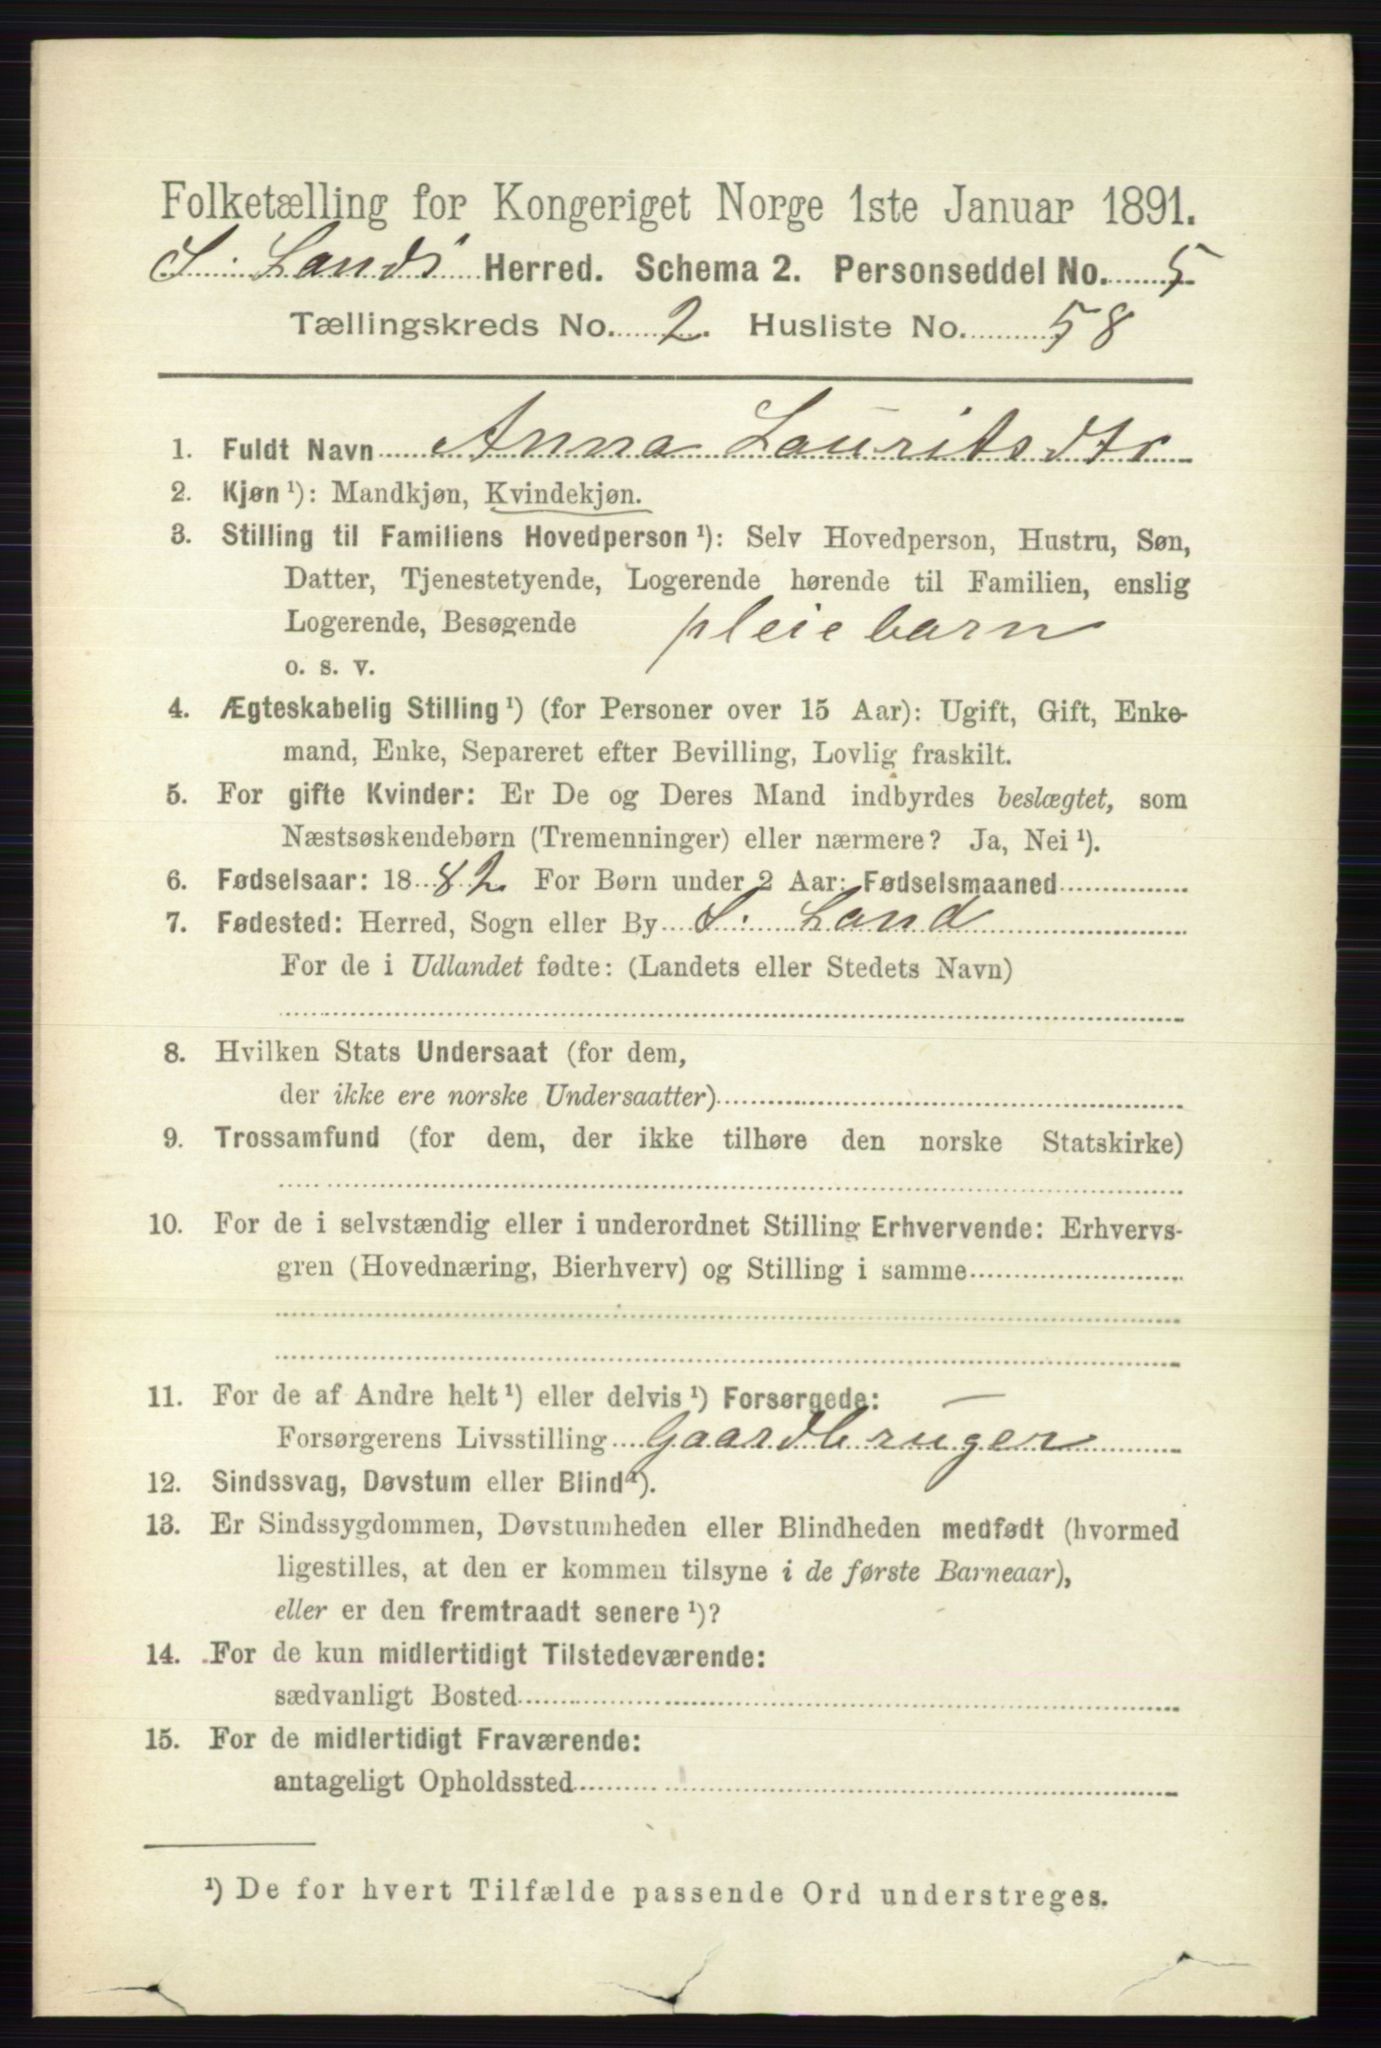 Folketælling for Kongeriget Norge 1ste Januar 1891.
S. Lands Herred. Schema 2. Personseddel No. 5
Tællingskreds No. 2. Husliste No. 58
1. Fuldt Navn Anna Lauritsdtr
2. Kjøn ¹): Mandkjøn, Kvindekjøn.
3. Stilling til Familiens Hovedperson ¹): Selv Hovedperson, Hustru, Søn,
Datter, Tjenestetyende, Logerende hørende til Familien, enslig
Logerende, Besøgende pleiebarn
o. s. v.
4. Ægteskabelig Stilling ¹) (for Personer over 15 Aar): Ugift, Gift, Enke-
mand, Enke, Separeret efter Bevilling, Lovlig fraskilt.
5. For gifte Kvinder: Er De og Deres Mand indbyrdes beslægtet, som
Næstsøskendebørn (Tremenninger) eller nærmere? Ja, Nei ¹).
6. Fødselsaar: 1882. For Børn under 2 Aar: Fødselsmaaned
7. Fødested: Herred, Sogn eller By S. Land
For de i Udlandet fødte: (Landets eller Stedets Navn)
8. Hvilken Stats Undersaat (for dem,
der ikke ere norske Undersaatter)
9. Trossamfund (for dem, der ikke tilhøre den norske Statskirke)
10. For de i selvstændig eller i underordnet Stilling Erhvervende: Erhvervs-
gren (Hovednæring, Bierhverv) og Stilling i samme
11. For de af Andre helt ¹) eller delvis ¹) Forsørgede:
Forsørgerens Livsstilling Gaardbruger
12. Sindssvag, Døvstum eller Blind ¹).
13. Er Sindssygdommen, Døvstumheden eller Blindheden medfødt (hvormed
ligestilles, at den er kommen tilsyne i de første Barneaar),
eller er den fremtraadt senere ¹)?
14. For de kun midlertidigt Tilstedeværende:
sædvanligt Bosted
15. For de midlertidigt Fraværende:
antageligt Opholdssted
¹) De for hvert Tilfælde passende Ord understreges.